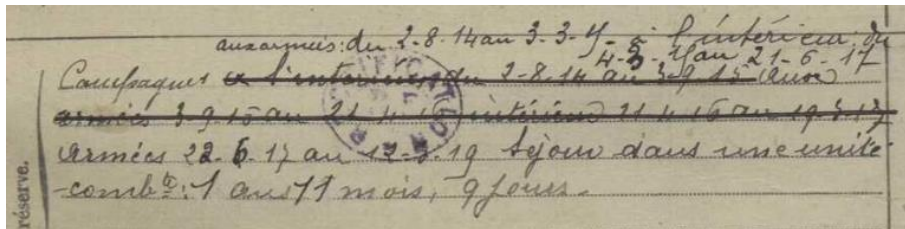 aux armées: du 2-8-14 au 3-3-17- à l'intérieur du
4-3-17 au 21-6-17
Campagnes à l'intérieur du 2-8-14 au 3-9-15 (aux
armées 3-9-15 au 21-4-16 intérieur 21 4 16 au 19-3-17
Armées 22.6.17 au 12-3-19 Séjour dans une unité
combte: 1 ans 11 mois, 9 jours-
réserve.